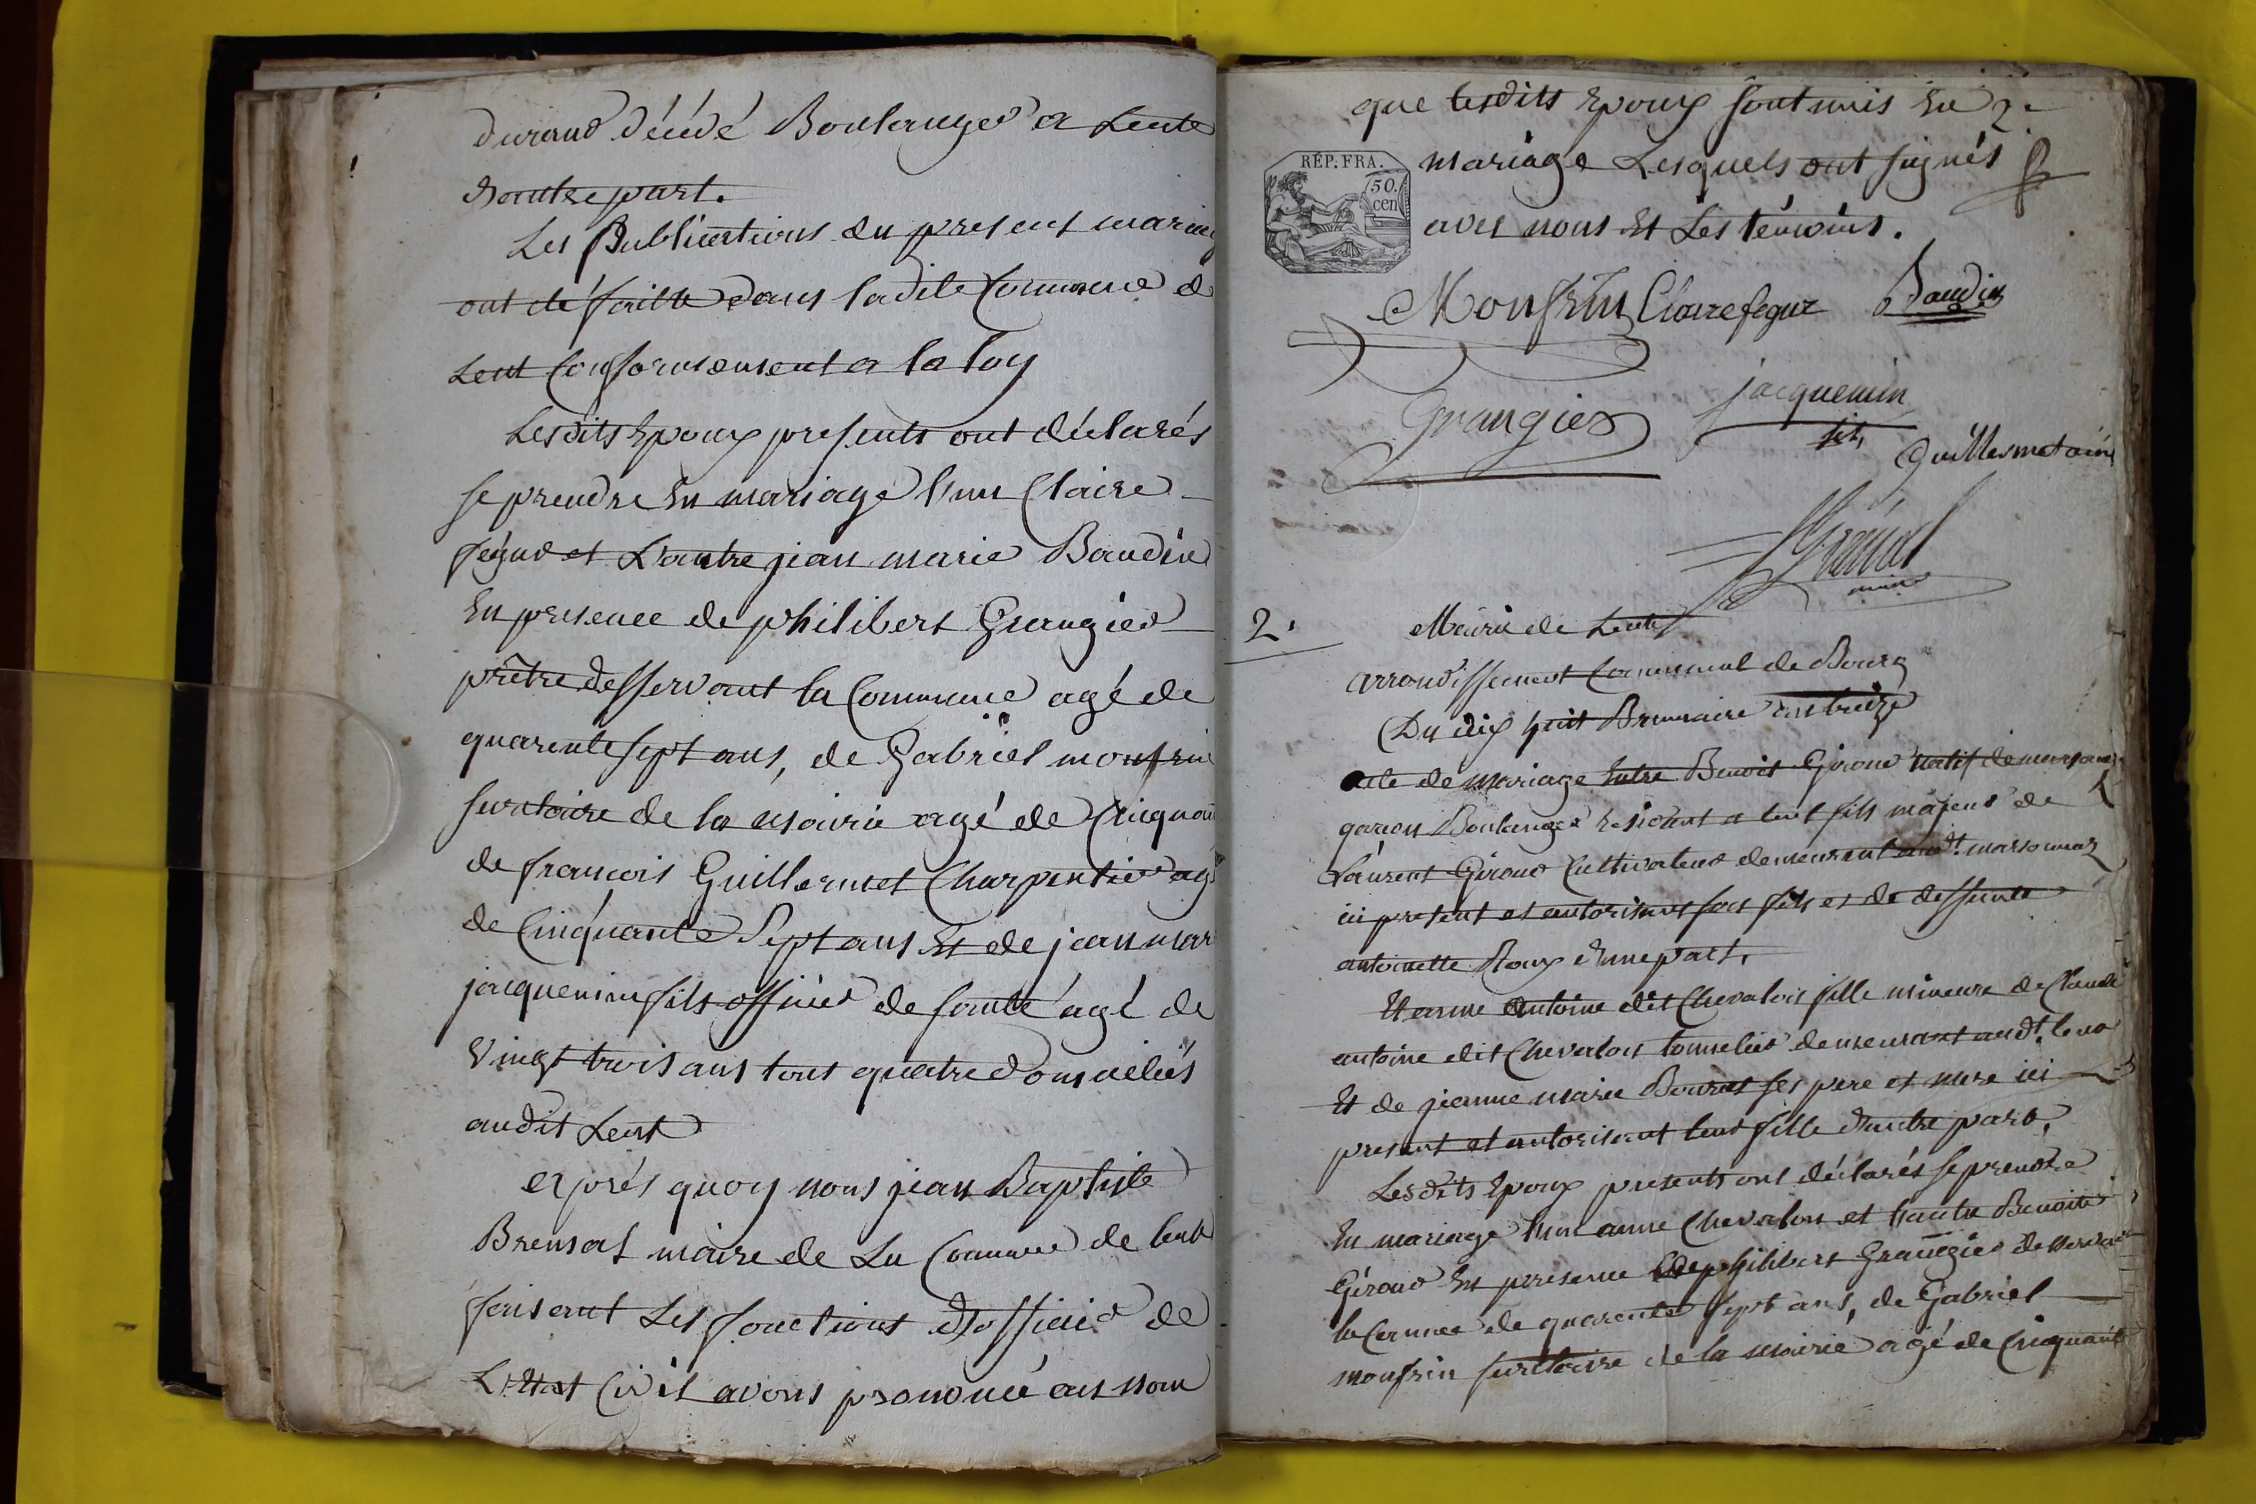 durand décédé Boulanger a Lent
d'autre part.
Les Publications du present mariag
ont été faitte dans ladite Commune de
Lent Conformement a la loy
Lesdits Epoux presents ont déclarés
se prendre En mariage l'un Claire
fégur et L'autre jean marie Baudin
En presence de philibert Grangier
prêtre desservant la Commune agé de
quarente sept ans, de Gabriel monfrin
secretaire de la mairie agé de Cinquan
de francois Guillermet Charpentier ag
de Cinquante Sept ans Et de jean mar
jacquemin fils officier de santé agé de
Vingt trois ans tous quatre domiciliés
audit Lent
aprés quoy nous jean Baptiste
Brensat maire de La Commune de lent
faisant Les fonctions d'officier de
L'Etat Civil avons prononcé au nom
que lesdits Epoux sont unis En
mariage Lesquels ont signés
avec nous Et Les témoins.
RÉP. FRA.
50.
cen
Monfrin Claire fegur Baudin
Grangier jacquemin
fils
Guillermet
maire
2.
Mairie de Lent
arrondissement Communal de Bourg
Du dix huit Brumaire an treize
acte de mariage Entre Benoit Giroud natif de marsonnaz
garcon Boulanger residant a lent fils majeur de
Laurent Giroud Cultivateur demeurant audt. marsonnaz
ici present et autorisant son fils et de deffunte
antoinette Roux d'une part.
Et anne Antoine dit Chevalon fille mineure de Claude
antoine dit Chevalon tonnelier demeurant audt. lent
Et de jeanne marie ses pere et mere ici
present et autorisant leur fille d'autre part,
Lesdits Epoux presents ont déclarés se prendre
En mariage l'un anne Chevalon et l'autre Benoite
Géroud En presence de philibert Grangier desservant
la Comunee de quarente sept ans, de Gabriel
monfrin secretaire de la mairie agé de Cinquante